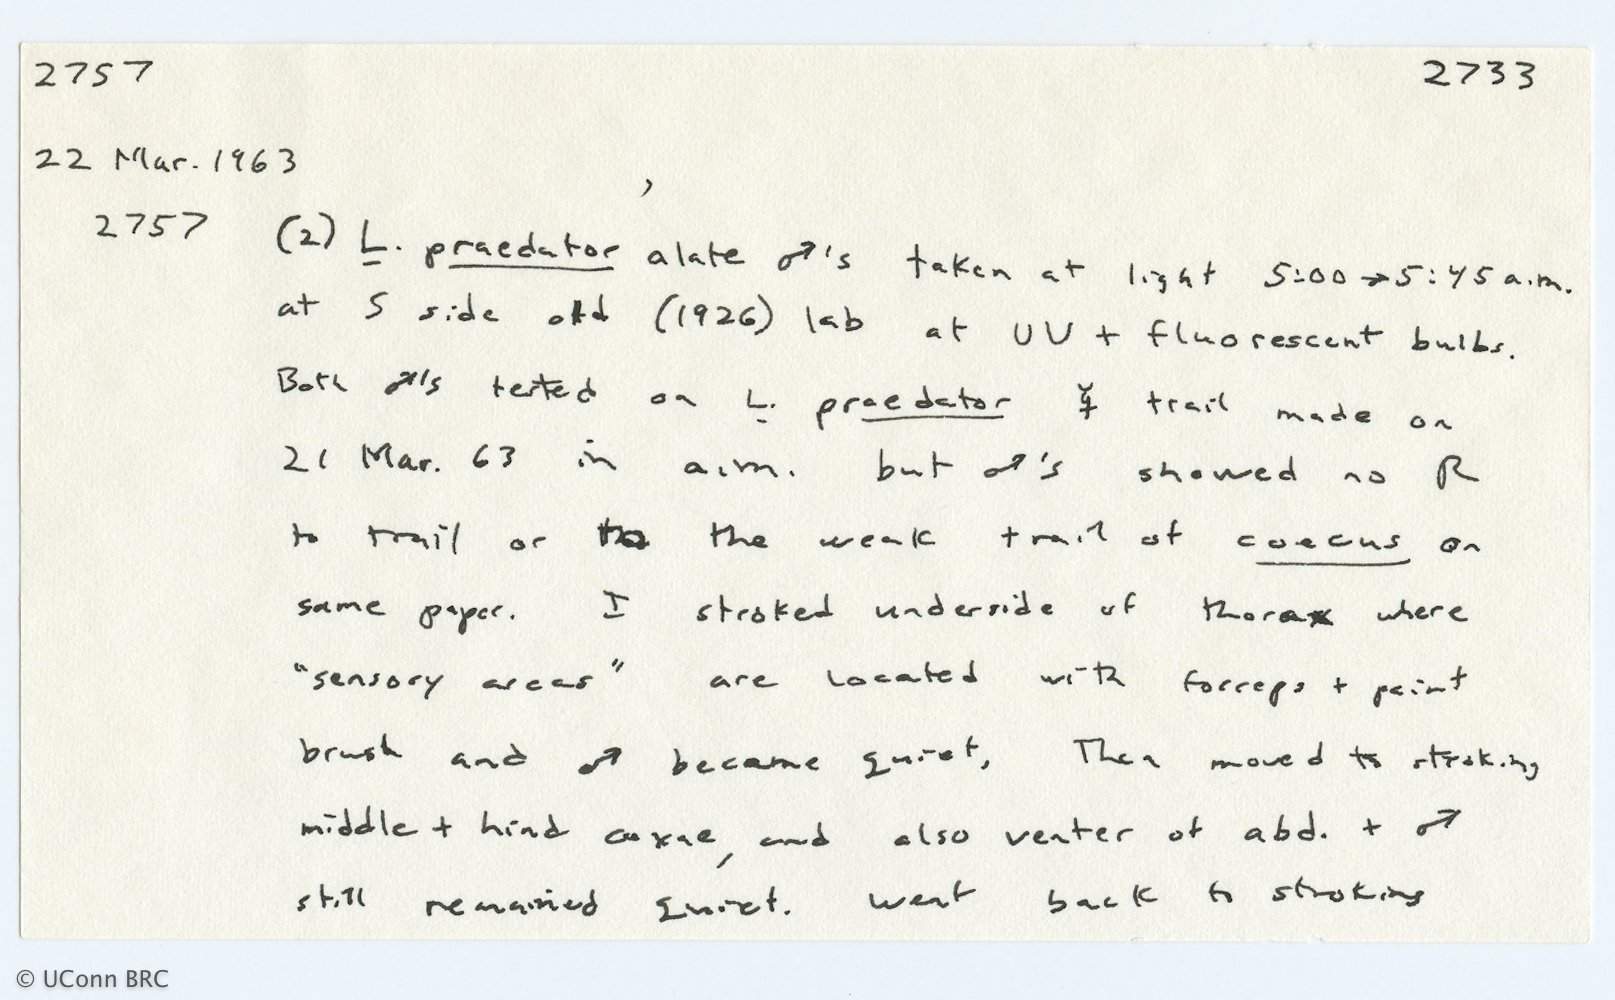 2757 2733
22 Mar. 1963
2757 (2) L. praedator alate ♂'s taken at light 5:00→5:45 a.m.
at S side old (1926) lab at UV + fluorescent bulbs.
Both ♂'s tested on L. praedator ☿ trail made on
21 Mar. 63 in a.m. but ♂'s showed no R
to trail or to the weak trail of coecus on
same paper. I stroked underside of thorax where
"sensory areas" are located with forceps + paint
brush and ♂ became quiet. Then moved to stroking
middle + hind coxae, and also venter of abd. + ♂
still remained quiet. Went back to stroking
© UConn BRC